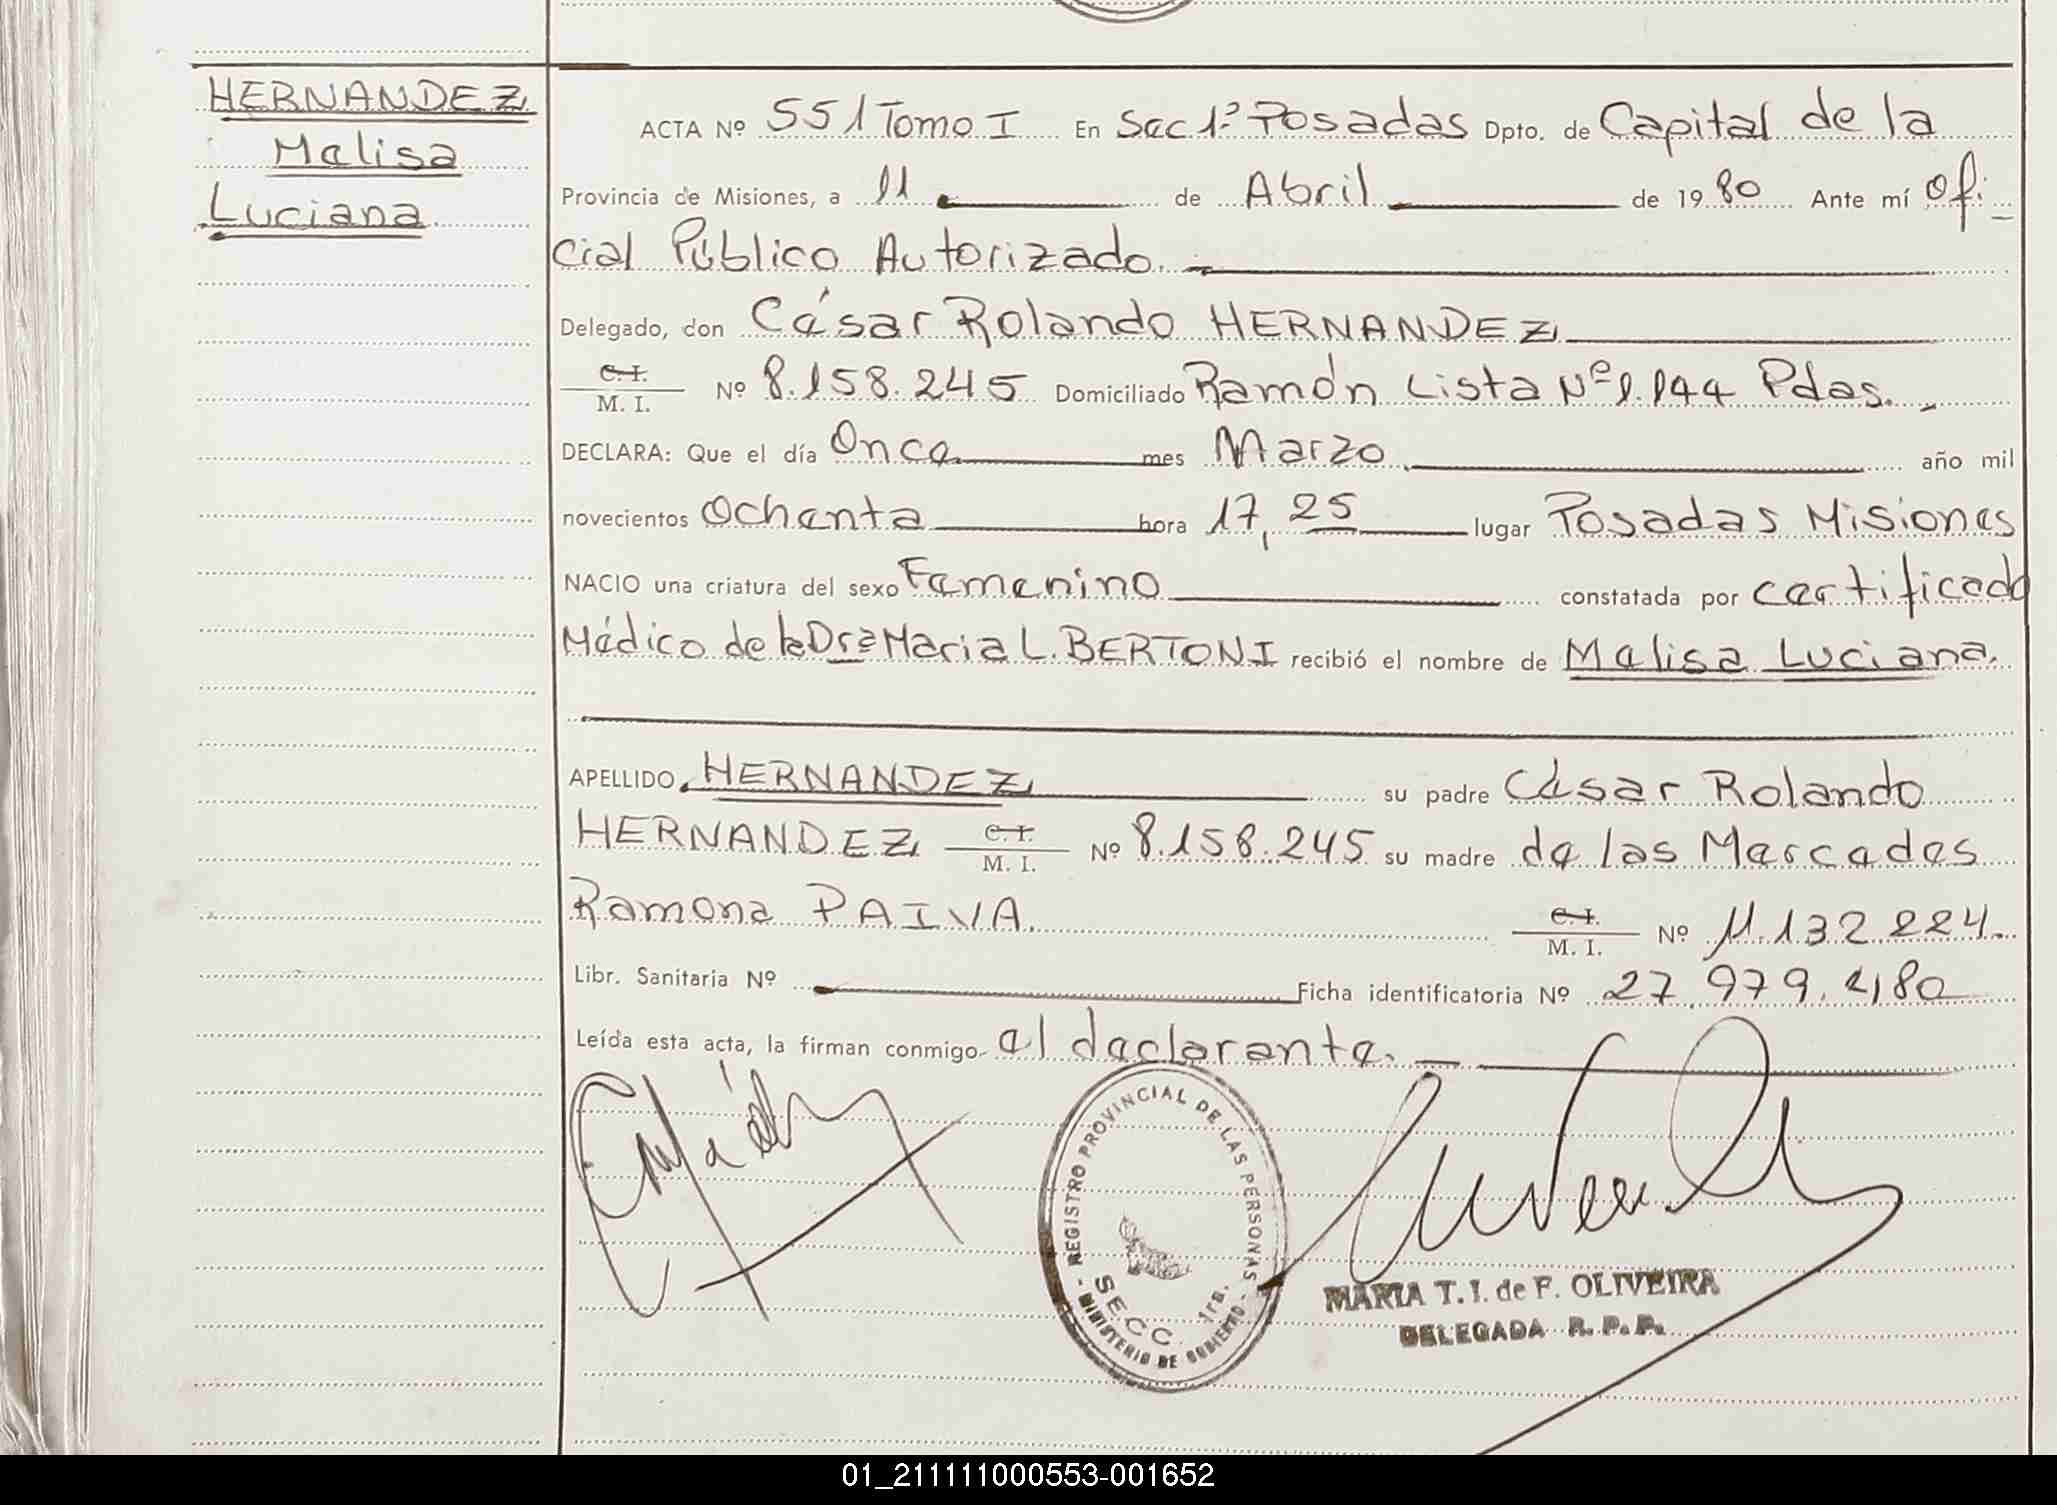 HERNANDEZ
Melisa
Luciana
ACTA Nº 551 Tomo I En Secc 1ª Posadas Dpto. de Capital de la
Provincia de Misiones, a 11 de Abril de 1980 Ante mí Ofi-
cial Público Autorizado.
Delegado, don César Rolando HERNANDEZ
C. I.
M. I. Nº 8.158.245 Domiciliado Ramón Lista Nº 1.144 Pdas.
DECLARA: Que el día Once mes Marzo año mil
novecientos Ochenta hora 17,25 lugar Posadas Misiones
NACIO una criatura del sexo Femenino constatada por certificado
Médico de la Dra María L. BERTONI recibió el nombre de Melisa Luciana.
APELLIDO HERNANDEZ su padre César Rolando
HERNANDEZ C. I.
M. I. Nº 8.158.245 su madre de las Mercedes
Ramona PAIVA. C. I.
M. I. Nº 11.132.224.
Libr. Sanitaria Nº Ficha identificatoria Nº 27.979.2/80
Leída esta acta, la firman conmigo el declarante.
- REGISTRO PROVINCIAL DE LAS PERSONAS -
SECC. 1ra.
MINISTERIO DE GOBIERNO
MARIA T. I. de F. OLIVEIRA
DELEGADA R. P. P.
01_211111000553-001652